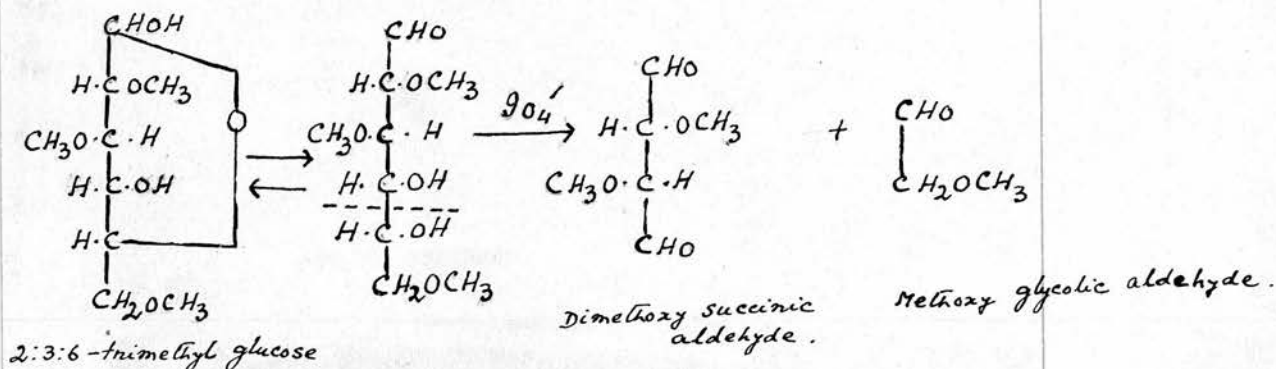 CHOH
H·C·OCH3
CH3O·C·H
H·C·OH
H·C
CH2OCH3
O
2:3:6-trimethyl glucose
CHO
H·C·OCH3
CH3O·C·H
H·C·OH
H·C·OH
CH2OCH3
IO4'
CHO
H·C·OCH3
CH3O·C·H
CHO
Dimethoxy succinic
aldehyde.
+
CHO
CH2OCH3
Methoxy glycolic aldehyde.